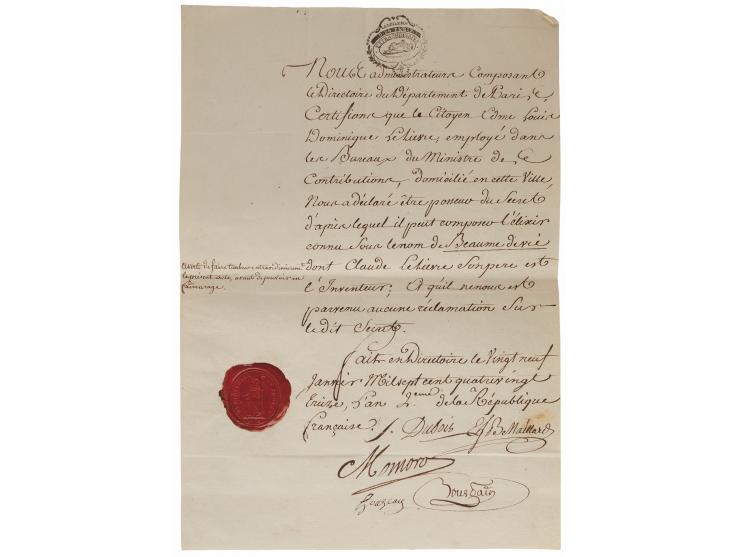 Nous administrateurs Composant
le Directoire du Département de Paris,
Certifions que le Citoyen Edme Louis
Dominique Lelievre, employé dans
les Bureaux du Ministre des
Contributions, domicilié en cette Ville
Nous a déclaré être posseur du Secret
d'après lequel il peut composer l'élixir
connu Sous le nom de Beaume de vie
dont Claude Lelievre Son pere est
l'Inventeur; Et qu'il ne nous est
parvenu aucune réclamation Sur
le dit Secret.
de faire timbrer extraordinairem
le présent acte, avant de pouvoir en
faire usage.
Fait en Directoire le Vingt neuf
Janvier Mil sept cent quatre vingt
treize, l'an 2eme de la République
française.
J. Dubois E J B Maillard
Momoro